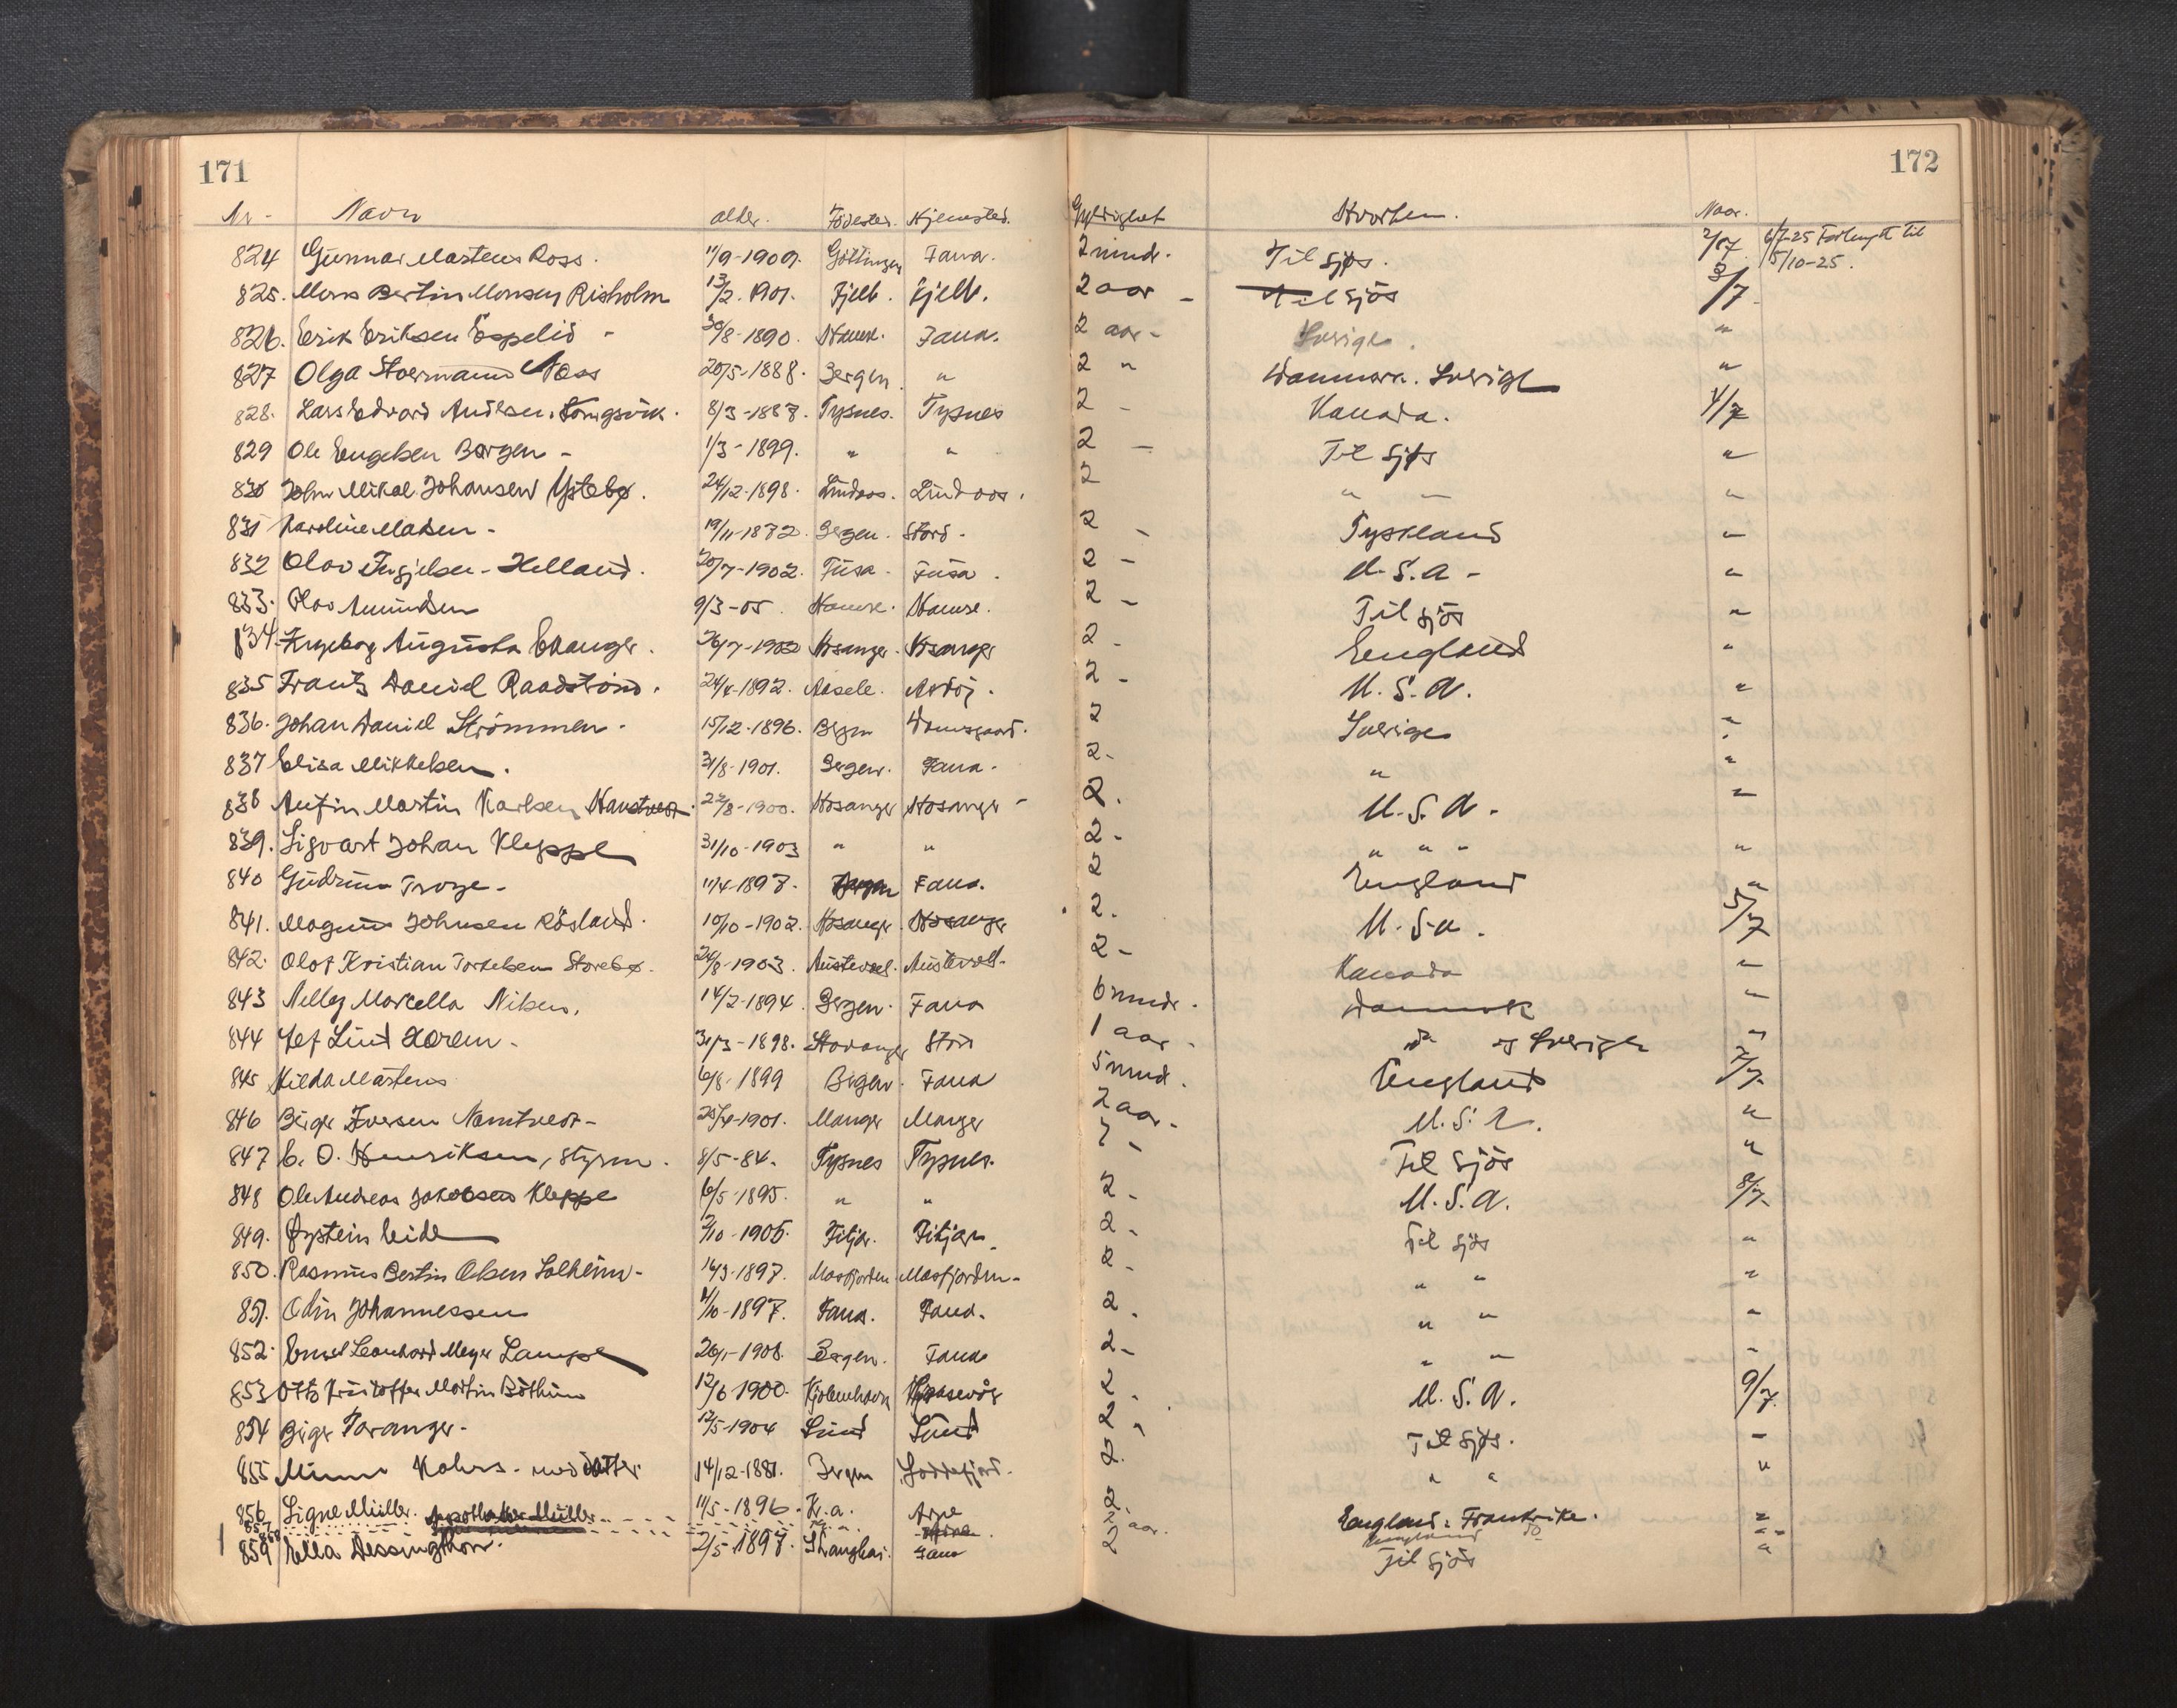 171
172
Nr. Navn alder. Fødested. Hjemsted. Gyldighet Hvorhen. Naar.
824 Gunnar Martens Ross. 11/9-1909. Göttingen Fana. 2 mnd. Til sjøs. 2/7 6/7-25 Forlenget til 5/10-25.
825. Mons Bertin Monsen Risholm 13/2-1901. Fjell. Fjell. 2 aar - Til sjøs 3/7
826. Erik Eriksen Espelid - 30/8-1890. Hamre. Fana. 2 aar - Sverige. "
827 Olga Stoermann Næss 20/5-1888. Bergen. " 2 " Danmark. Sverige "
828. Lars Edvard Andersen 8/3-1887. Tysnes. Tysnes 2 - Kanada. 4/7
829 Ole Engelsen Bergen - 1/3-1899. " " 2 - Til sjøs "
830 John Mikal Johansen Ystebø. 24/12-1898. Lindaas. Lindaas. 2 " " "
831 Karoline Madsen - 19/11-1872. Bergen. Stord. 2 - Tyskland "
832 Olav Ingjelsen Helland. 20/7-1902. Fusa. Fusa. 2 - U.S.A - "
833. Olav Amundsen 9/3-05. Hamre. Hamre. 2 - Til sjøs "
834. Ingeborg Augusta Evanger. 26/7-1902 Hosanger. Hosanger 2 - England "
835 Frantz Daniel Raadstrand. 24/4-1892. Askøy. 2 - U.S.A. "
836. Johan Daniel Strömmen. 15/12-1896. Bergen Damsgaard. 2 Sverige "
837 Elisa Mikkelsen. 31/8-1901. Bergen. Fana. 2 - " "
838 Anfin Martin Karlsen 22/8-1900. Hosanger Hosanger - 2. U.S.A. "
839. Sigvart Johan Kleppe 31/10-1903 " " 2 - " " " "
840 Gudrun Troye. 11/4-1897. Bergen Fana. 2 England "
841. Magnus Johnsen Røsland. 10/10-1902. Hosanger. Hosanger 2. U.S.A. 5/7
842. Olof Kristian Torkelsen Storebø. 24/8-1903. Austevoll. Austevoll. 2 - Kanada "
843 Nelly Marcella Nilsen. 14/2-1894. Bergen. Fana 6 mndr. Danmark "
844 Lef Lind 31/3-1898. Stavanger Stord 1 aar - do og Sverige "
845 Hilda Martens 6/8-1899 Bergen. Fana 5 mnd. England 7/7
846 Birger Iversen Namtvedt - 25/4-1901. Manger Manger 2 aar - U.S.A. "
847 C. O. Henriksen, styrm. 8/5-84. Tysnes Tysnes. 2 - Til sjøs "
848 Ole Andreas Jakobsen Kleppe 6/5-1895. " " 2 - U.S.A. 8/7
849. Øystein Eide 2/10-1905. Fitjar. Fitjar 2 - Til sjøs "
850. Rasmus Bertin Olsen Solheim - 16/3-1897. Masfjorden Masfjorden - 2 - " " "
851. Odin Johannessen 11/10-1897. Fana. Fana. 2 - " " "
852. Ernst Leonhard Meyer Lampe 26/1-1908. Bergen. Fana 2 - " " "
853 Otto Kristoffer Martin Böthun 12/6 1900. Kjøbenhavn 2 - U.S.A. 9/7
854 Birger Faranger - 12/5-1904 Sund Sund 2 " Til sjøs. "
855 Minna Kahrs - med datter 14/12-1881. Bergen Goddefjord. 2. " " "
856 Signe Müller. Apotheker Müller 11/5-1896. Kr.a. Arne 2. England. Frankrike. "
857 858 2 aar. England do "
859 Ella Dessington. 2/5-1897. Shanghai. Fana 2 Til sjøs "